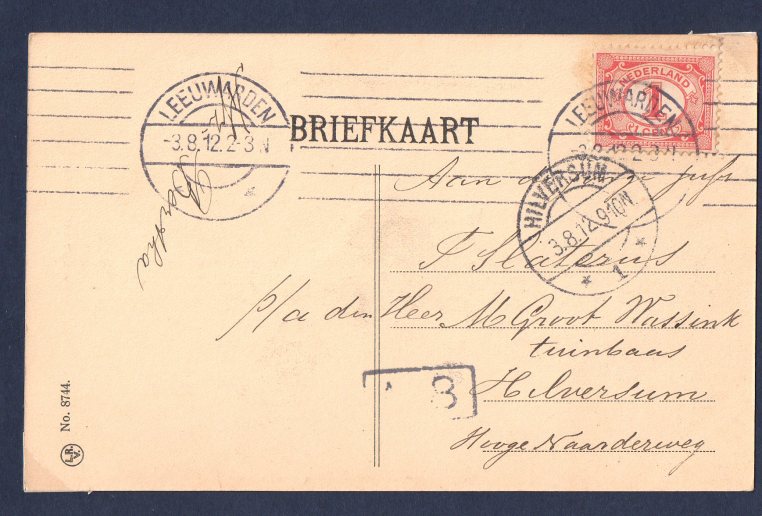 LEEUWARDEN
-3.8.12.2-3N
BRIEFKAART
NEDERLAND
1
LEEUWARDEN
-3.8.12.2-3N
HILVERSUM
3.8.12.9-10N
1
Bertha
Aan
F Slaterus
p/a den Heer M Groot Wassink
tuinbaas
Hilversum
Hooge Naarderweg
3
No. 8744.
L.R.
V.